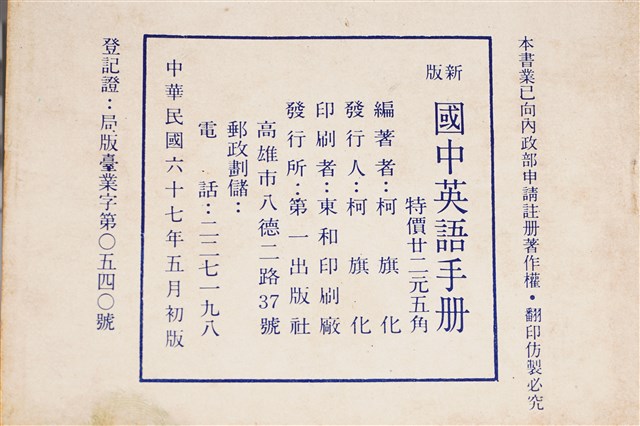 本書業已向內政部申請註册著作權•翻印仿製必究
新版
國中英語手册
特價廿二元五角
編著者：柯旗化
發行人：柯旗化
印刷者：東和印刷廠
發行所：第一出版社
高雄市八德二路37號
郵政劃儲：
電話：二二七一九八
中華民國六十七年五月初版
登記證：局版臺業字第〇五四〇號